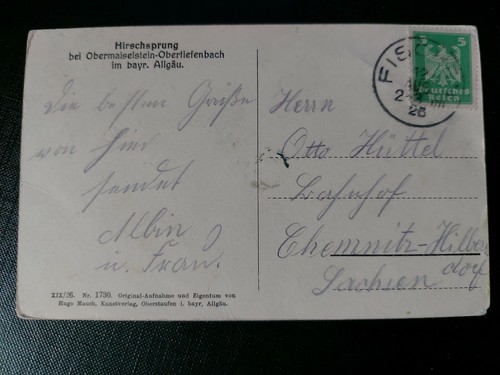 Hirschsprung
bei Obermaiselstein-Obertiefenbach
im bayr. Allgäu.
Die besten Grüße
von hier
sendet
Albin
u. Frau.
XIX/26. Nr. 1730. Original-Aufnahme und Eigentum von
Hugo Mauch, Kunstverlag, Oberstaufen i. bayr. Allgäu.
5
5
Deutsches
Reich
FIS
12
2-3
26
Herrn
Otto Hüttel
Bahnhof
Chemnitz-Hilbers
dorf
Sachsen